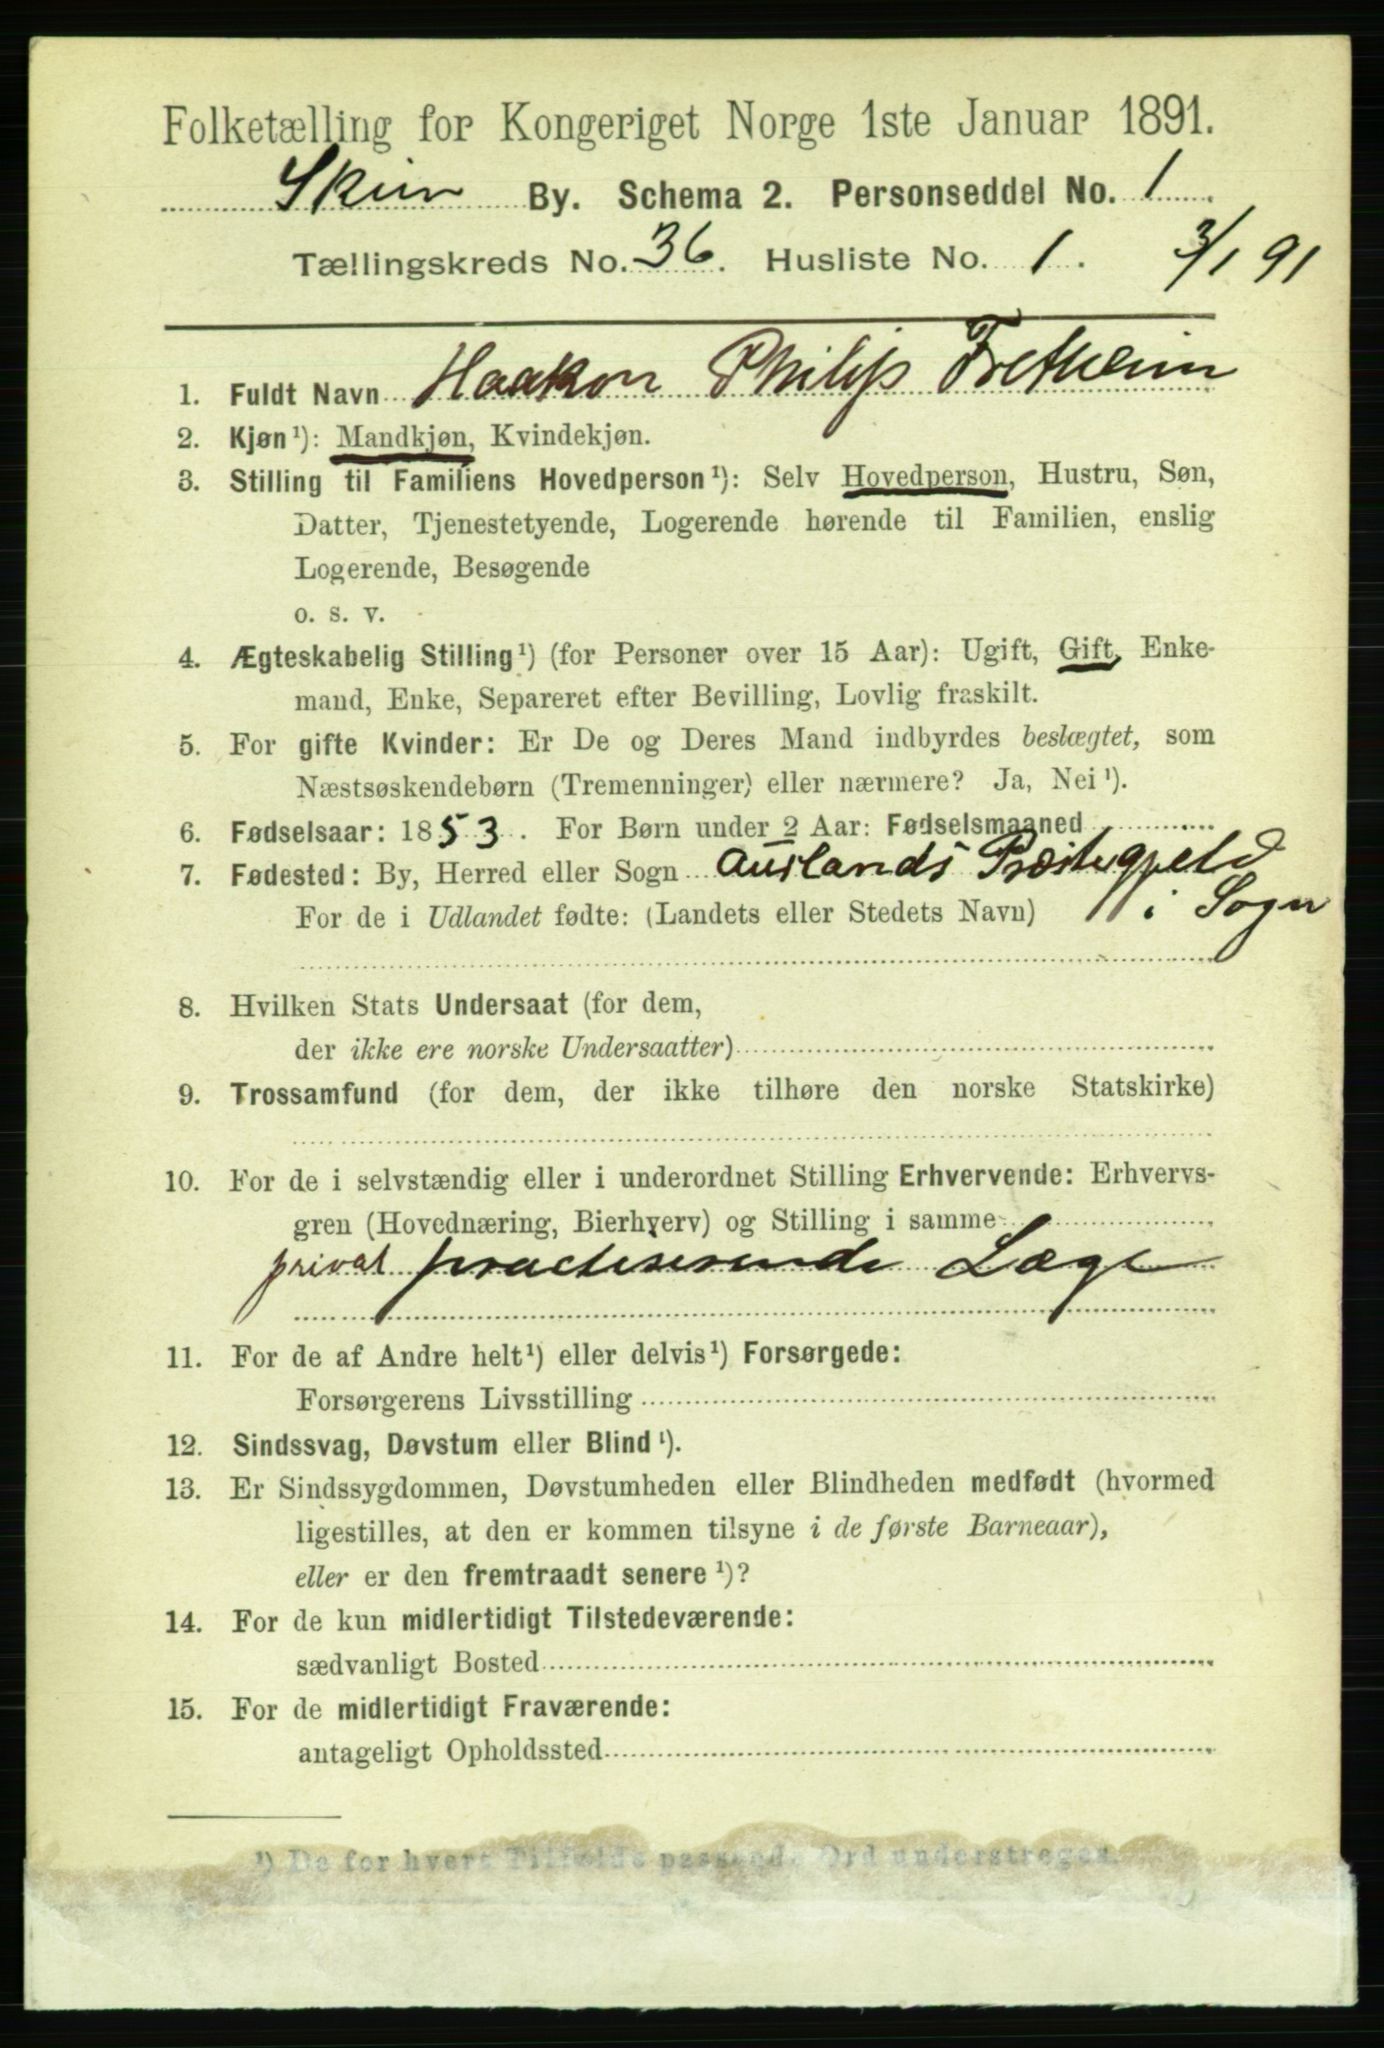 Folketælling for Kongeriget Norge 1ste Januar 1891.
Skien By. Schema 2. Personseddel No. 1
Tællingskreds No. 36. Husliste No. 1. 3/1 91
1. Fuldt Navn Haakon Philip Fretheim
2. Kjøn¹): Mandkjøn, Kvindekjøn.
3. Stilling til Familiens Hovedperson¹): Selv Hovedperson, Hustru, Søn,
Datter, Tjenestetyende, Logerende hørende til Familien, enslig
Logerende, Besøgende
o. s. v.
4. Ægteskabelig Stilling¹) (for Personer over 15 Aar): Ugift, Gift, Enke-
mand, Enke, Separeret efter Bevilling, Lovlig fraskilt.
5. For gifte Kvinder: Er De og Deres Mand indbyrdes beslægtet, som
Næstsøskendebørn (Tremenninger) eller nærmere? Ja, Nei¹).
6. Fødselsaar: 1853. For Børn under 2 Aar: Fødselsmaaned
7. Fødested: By, Herred eller Sogn Aurlands Præstegjeld
For de i Udlandet fødte: (Landets eller Stedets Navn) i Sogn
8. Hvilken Stats Undersaat (for dem,
der ikke ere norske Undersaatter)
9. Trossamfund (for dem, der ikke tilhøre den norske Statskirke)
10. For de i selvstændig eller i underordnet Stilling Erhvervende: Erhvervs-
gren (Hovednæring, Bierhverv) og Stilling i samme
privat practiserende Læge
11. For de af Andre helt¹) eller delvis¹) Forsørgede:
Forsørgerens Livsstilling
12. Sindssvag, Døvstum eller Blind¹).
13. Er Sindssygdommen, Døvstumheden eller Blindheden medfødt (hvormed
ligestilles, at den er kommen tilsyne i de første Barneaar),
eller er den fremtraadt senere¹)?
14. For de kun midlertidigt Tilstedeværende:
sædvanligt Bosted
15. For de midlertidigt Fraværende:
antageligt Opholdssted
¹) De for hvert Tilfælde passende Ord understreges.